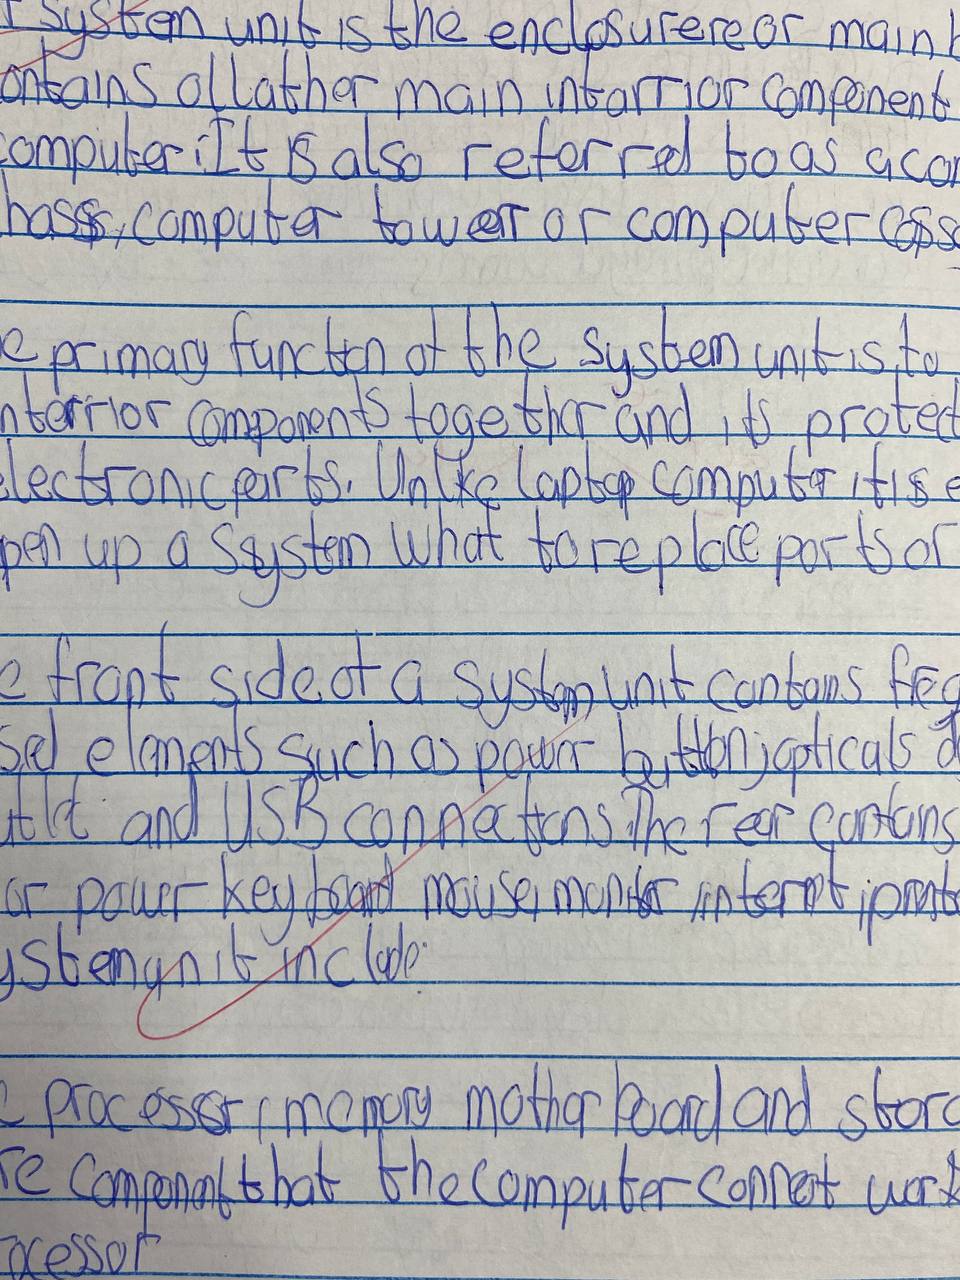 system unit is the enclosurere or main
ontains all ather main intarrior component
computer. It is also referred to as a com
hasss, computer tower or computer case
e primary function of the system unit is to
nterrior components together and its protect
electronic parts. Unlike laptop computer it is e
pen up a system what to replace parts or
e front side of a system unit contains freq
sed elements such as power button, opticals d
and USB connections. The rear contains
or power keyboard mouse, monitor internet, print
ystem unit include:
e processor, memory mother board and stora
re component that the computer connot work
ocessor